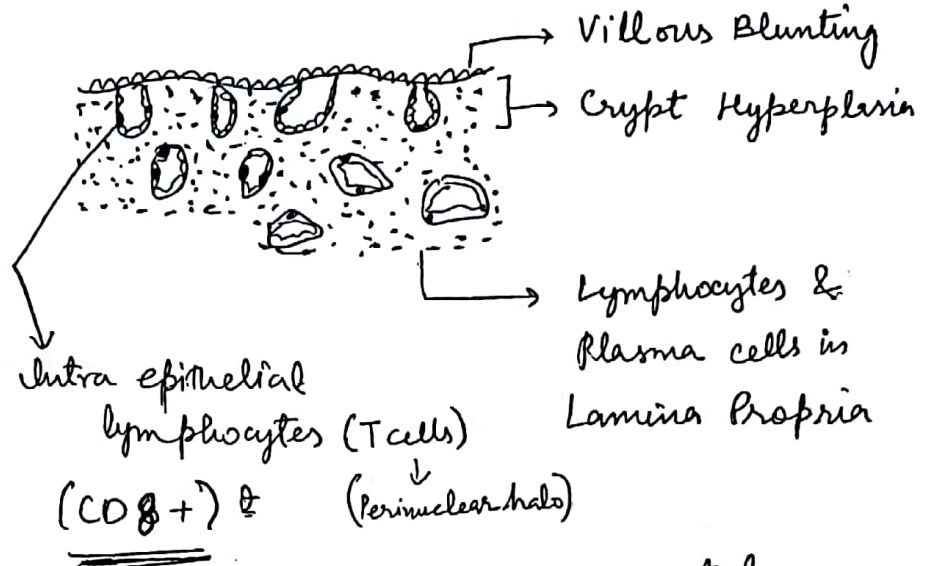 Villous Blunting
Crypt Hyperplasia
Lymphocytes &
Plasma cells in
Lamina Propria
Intra epithelial
lymphocytes (T cells)
(CD8+)
(Perinuclear halo)